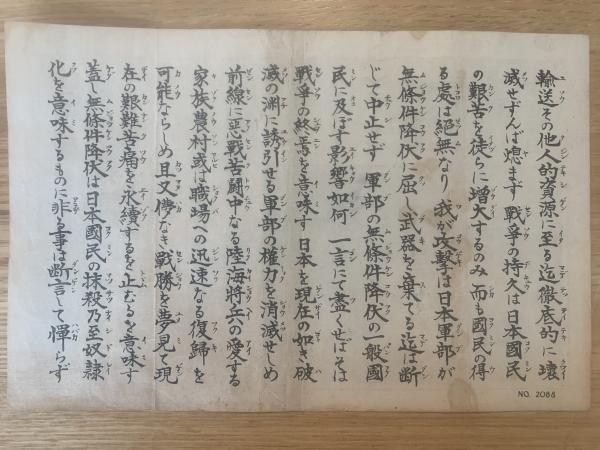 輸送その他人的資源に至る迄徹底的に壊
滅せずんば熄まず 戦爭の持久は日本國民
の艱苦を徒らに増大するのみ 而も國民の得
る處は絶無なり 我が攻撃は日本軍部が
無條件降伏に屈し武器を棄てる迄は断
じて中止せず 軍部の無條件降伏の一般國
民に及ぼす影響如何 一言にて盡くせばそは
戦爭の終焉を意味す 日本を現在の如き破
滅の淵に誘引せる軍部の權力を消滅せしめ
前線に悪戦苦闘中なる陸海將兵の愛する
家族農村或は職場への迅速なる復歸を
可能ならしめ且又儚なき戦勝を夢見て現
在の艱難苦痛を永續するを止むるを意味す
蓋し無條件降伏は日本國民の抹殺乃至奴隷
化を意味するものに非る事は断言して憚らず
NO. 2088